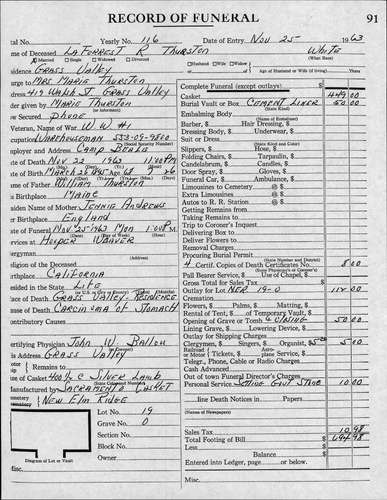 RECORD OF FUNERAL 91
tal No. Yearly No. 116 Date of Entry Nov 25 1963
me of Deceased LaForrest R Thurston White
Married Single Widowed Divorced (What Race)
sidence Grass Valley
Husband Wife Widow of Age of Husband or Wife (if living) Years
Mrs. Marie Thurston
dress 419 Walsh St Grass Valley
der given by Marie Thurston
or Secured phone
Veteran, Name of War W W #1
cupation Warehouseman 553-09-9800
(Social Security Number)
mployer and Address Camp Beale
te of Death Nov 22 1963 11:00 PM
te of Birth March 26 1895 Age 68 7 26
me of Father William Thurston
Birthplace Maine
iden Name of Mother Jennie Andrews
Birthplace England
te of Funeral Nov 25 1963 Mon 1:00 P.M.
vices at Hooper Weaver
ergyman
igion of the Deceased
rthplace California
esided in the State Life
ace of Death Grass Valley - Residence
use of Death Carcinoma of Stomach
ontributory Causes
ertifying Physician John W. Ballou
is Address Grass Valley
Remains to
e of Casket 400 1/2 C Silver Lamb
anufactured by Sacramento Casket
New Elm Ridge
Lot No. 19
Grave No. 0
Section No.
Block No.
Owner
Diagram of Lot or Vault
Complete Funeral (except outlays) $
Casket 449 00
Burial Vault or Box Cement Liner 50 00
(State Kind)
Embalming Body
(Name of Embalmer)
Barber, $ Hair Dressing, $
Dressing Body, $ Underwear, $
Suit or Dress
(State Kind and Color)
Slippers, $ Hose, $
Folding Chairs, $ Tarpaulin, $
Candelabrum, $ Candles, $
Door Spray, $ Gloves, $
Funeral Car, $ Ambulance, $
Limousines to Cemetery @ $
Extra Limousines @ $
Autos to R. R. Station @ $
Getting Remains from
Taking Remains to
Trip to Coroner's Inquest
Delivering Box to
Deliver Flowers to
Removal Charges
Procuring Burial Permit
(State Number and District)
4 Certif. Copies of Death Certificate No. 8 00
(State Physician's or Coroner's)
Pall Bearer Service, $ Use of Chapel, $
Gross Total for Sales Tax $
Outlay for Lot NER 19-0 112 00
Cremation
Flowers, $ Palms, $ Matting, $
Rental of Tent, $ of Temporary Vault, $
Opening of Grave or Tomb & Closing 50 00
Lining Grave, $ Lowering Device, $
Outlay for Shipping Charges
Clergymen, $ Singers, $ Organist, $ 5 00 5 00
Railroad or Motor $ Tickets, $ Aeroplane Service, $
Telegr., Phone, Cable or Radio Charges
Cash Advanced
Out of town Funeral Director's Charges
Personal Service, Setting Govt Stone 10 00
line Death Notices in Papers
(Names of Newspapers)
Sales Tax 10 98
Total Footing of Bill $ 694 98
Less $
Balance $
Entered into Ledger, page or below.
Misc.